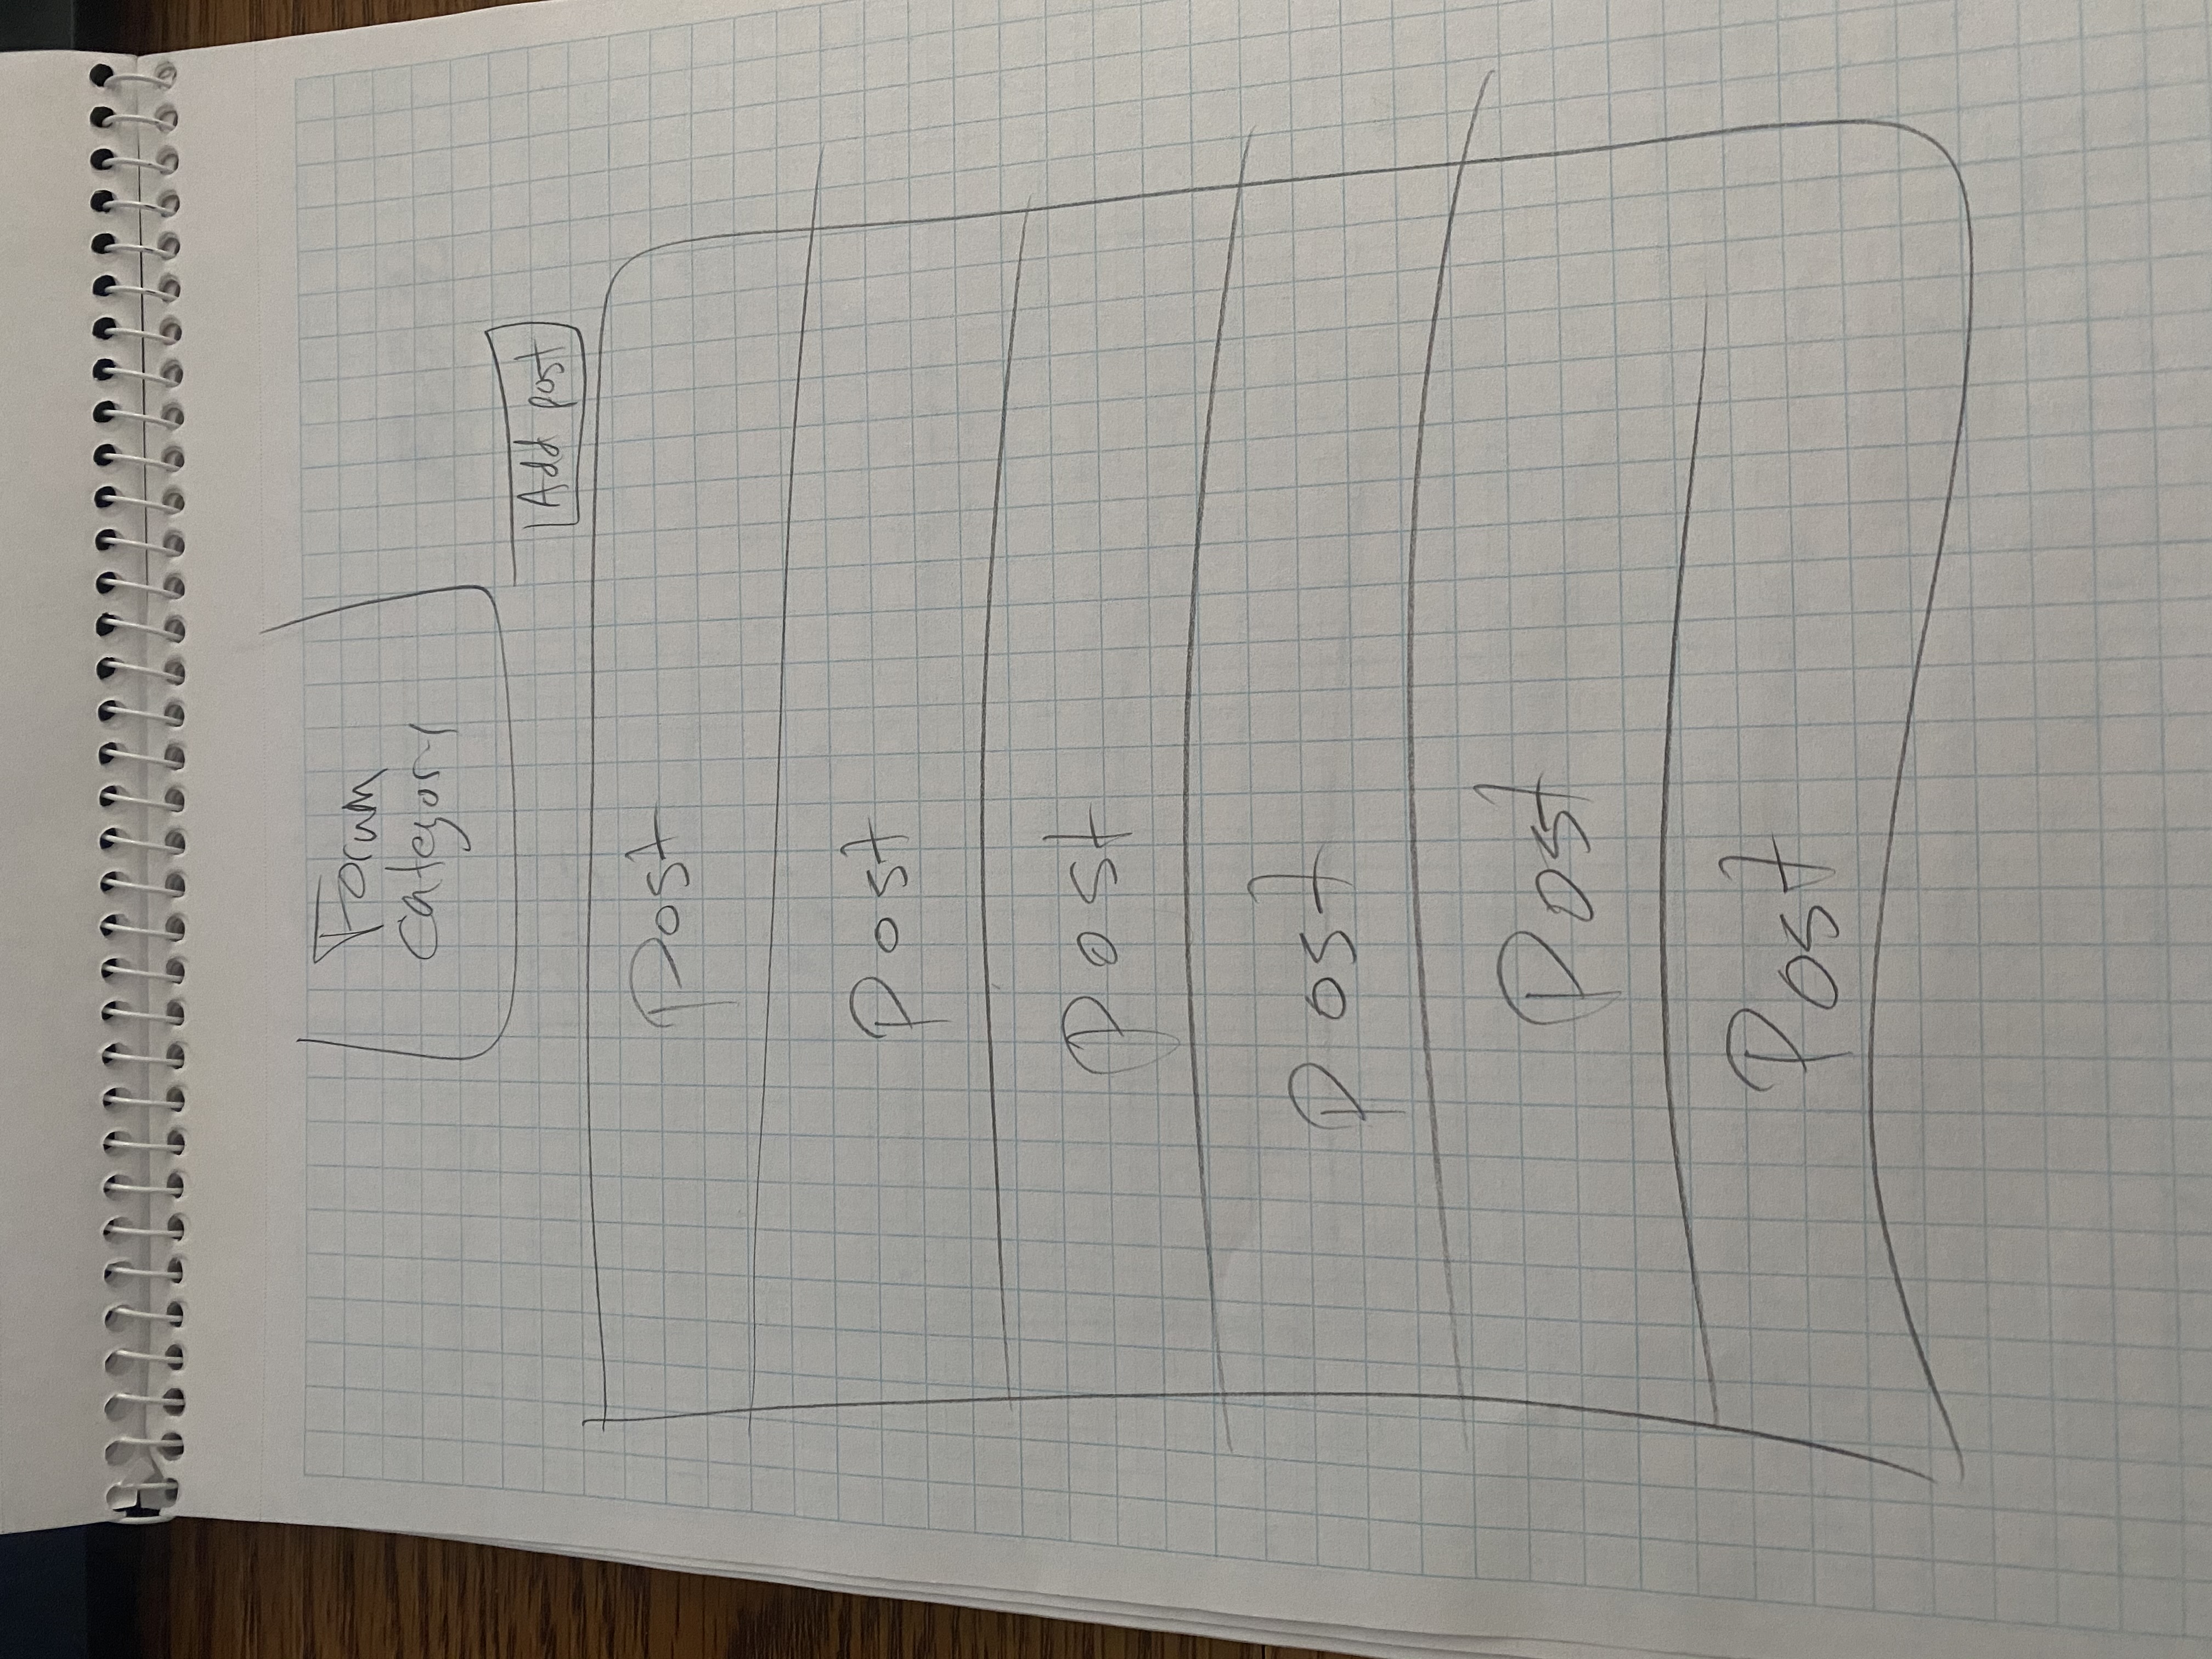 Forum
category
Add post
Post
Post
Post
Post
Post
Post